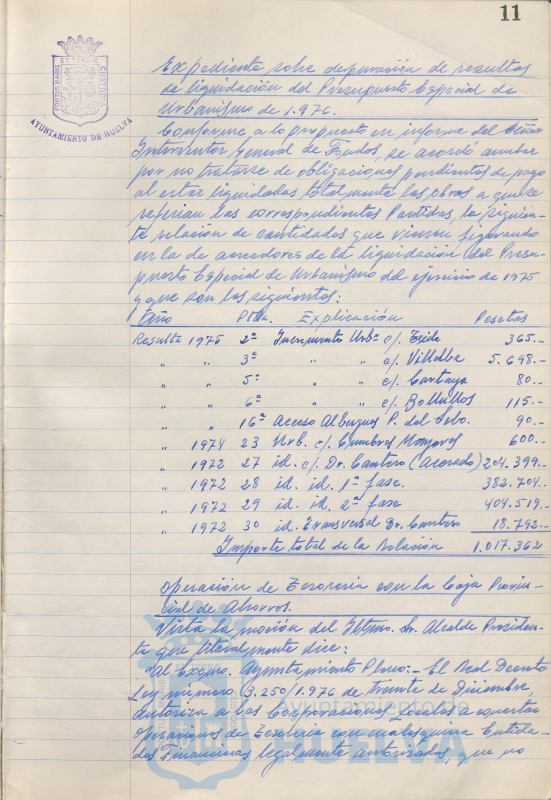 11
AYUNTAMIENTO DE HUELVA
Expediente sobre depuración de resultas
de liquidación del Presupuesto Especial de
Urbanismo de 1.976.
Conforme a lo propuesto en informe del Señor
Interventor General de Fondos, se acordó anular
por no tratarse de obligaciones pendientes de pago
al estar liquidadas totalmente las obras a que se
referian las correspondientes Partidas, la siguien-
te relación de cantidades que vienen figurando
en la de acreedores de la liquidación del Presu-
puesto Especial de Urbanismo del ejercicio de 1975
y que son las siguientes:
Año Ptda. Explicación Pesetas
Resulta 1975 2ª Incremento Urbª c/. Teide 365.-
" " 3ª " " c/. Villalba 5.698.-
" " 5ª " " c/. Cartaya 80.-
" " 6ª " " c/. Bollullos 115.-
" " 16ª Acceso Albergues P. del Sebo. 90.-
" 1974 23 Urb. c/. Cumbres Mayores 600.-
" 1972 27 id. c/. Dr. Cantero (Acerado) 204.399.-
" 1972 28 id. id. 1ª fase. 382.704.-
" 1972 29 id. id. 2ª fase 404.519.-
" 1972 30 id. Transversal Dr. Cantero 18.792.-
Importe total de la Relación 1.017.362
Operación de Tesoreria con la Caja Provin-
cial de Ahorros.
Vista la moción del Iltmo. Sr. Alcalde Presiden-
te que literalmente dice:
"Al Excmo. Ayuntamiento Pleno:- El Real Decreto
Ley número 3.250/1.976 de treinta de Diciembre,
autoriza a las Corporaciones Locales a concertar
Operaciones de Tesoreria con cualesquiera Entida-
des Financieras legalmente autorizadas, que no
Ayuntamiento de
HUELVA